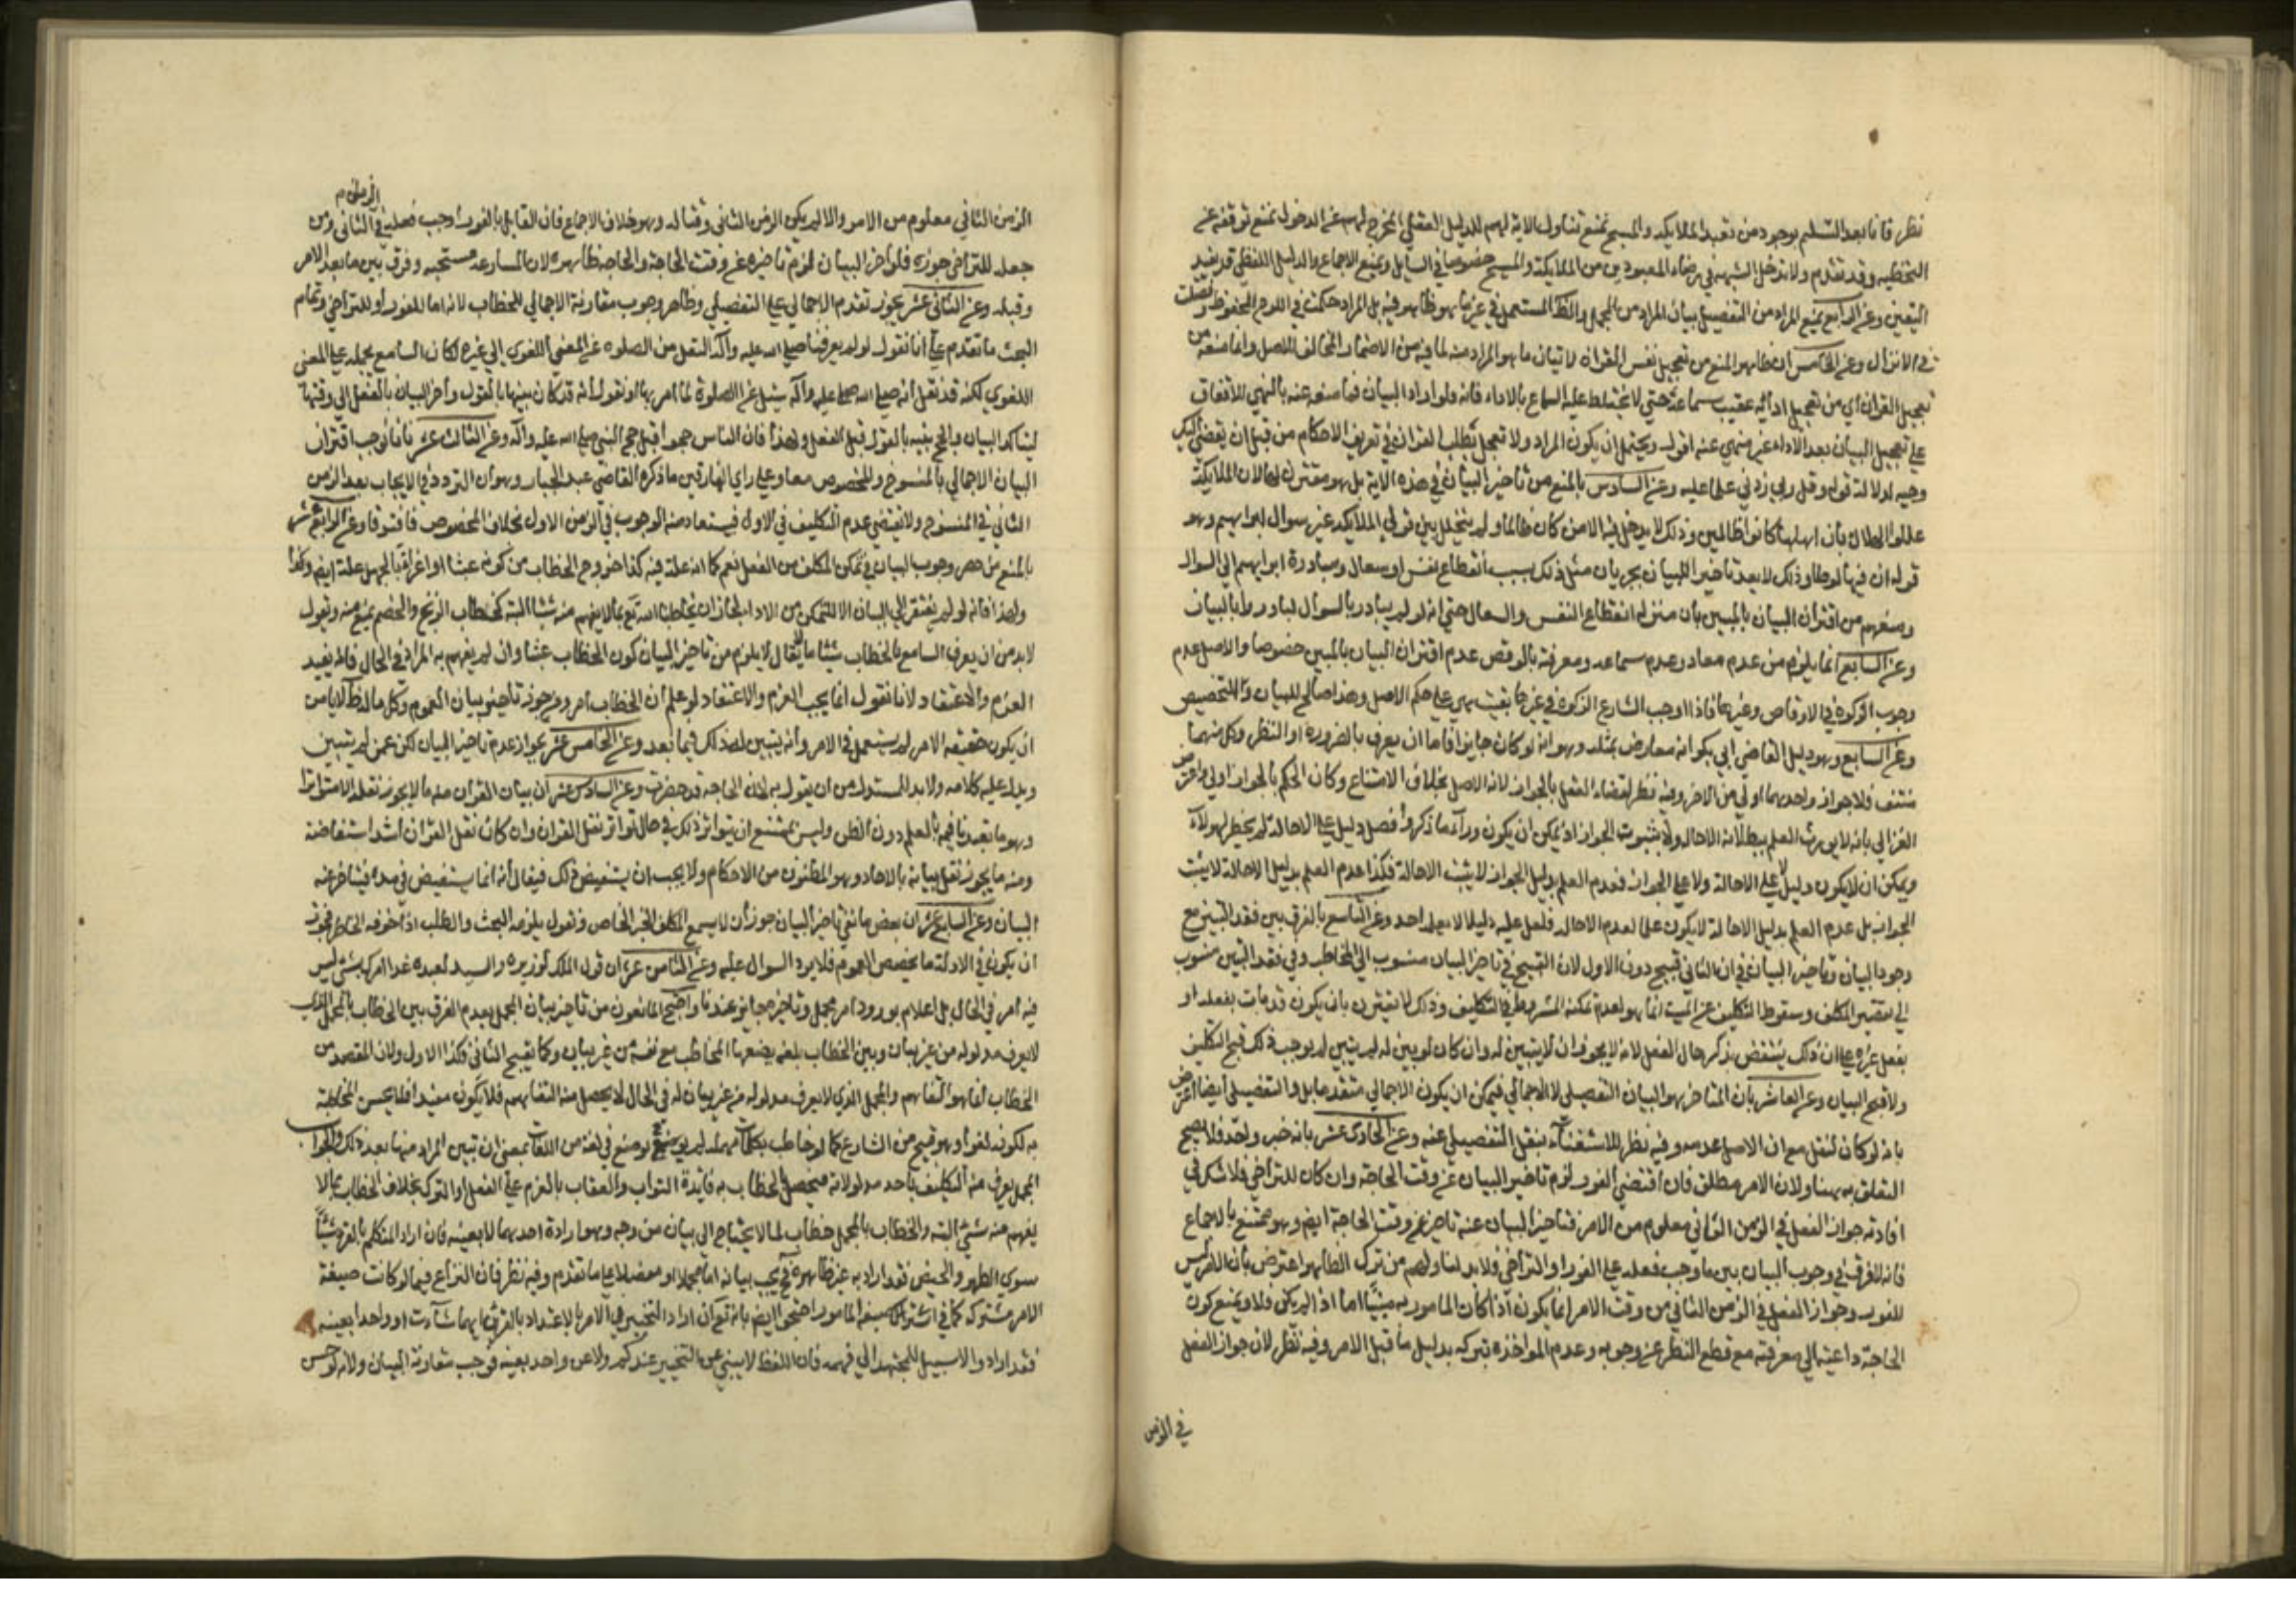 نظر فانا بعد التسليم بوجود من تعبد الملايكه والمسيح نمنع تناول الاية لهم للدليل العقلي المخرج لهم عن الدخول نمنع توقفه عن
التخطيه وقد تقدم ولا تدخل الشبهه في رضاء المعبودين من الملايكة والمسيح خصوصا في السايل ونمنع الاجماع والدليل اللفظي قد يفيد
اليقين وعن الرابع نمنع المراد من التفصيل بيان المراد من المجمل والظ المستعمل في غير ما هو ظاهر فيه بل المراد احكمت في اللوح المحفوظ وفصلت
في الانزال وعن الخامس ان ظاهر المنع من تعجيل نفس القران لا تيان ما هو المراد منه لما فيه من الاضمار المخالف للاصل وانما منعه من
تعجيل القران اي من تعجيل ادائه عقيب سماعه حتى لا يختلط عليه السماع بالاداء فانه ولو اراد البيان لما منعه عنه بالنهي للاتفاق
على تعجيل البيان بعد الاداء غير منهي عنه اقول ويحتمل ان يكون المراد ولا تعجل بطلب القران في تعريف الاحكام من قبل ان يقضى اليك
وحيه لدلالة قوله وقل رب زدني علما عليه وعن السادس بالمنع من تاخير البيان في هذه الاية بل هو مقترن بالحال لان الملايكة
عللوا الهلاك بان اهلها كانوا ظالمين وذلك لا يدخل فيه الا من كان ظالما ولم يتخلل بين قولي الملايكه غير سوال ابراهيم وهو
قوله ان فيها لوطا وذلك لا يعد تاخيرا للبيان بجريان مثل ذلك بسبب انقطاع نفس او سعال ومبادرة ابراهيم الى السوال
ومنعهم من اقتران البيان بالمبين بان منزله انقطاع النفس والسعال حتى انه لو لم يبادر بالسوال لبادروا بالبيان
وعن السابع انما يلزم من عدم معاد وعدم سماعه ومعرفته بالوقص عدم اقتران البيان بالمبين خصوصا والاصل عدم
وجوب الزكوة في الاوقاص وغيرها فاذا اوجب الشارع الزكوة في غيرها بقيت هي على حكم الاصل وهذا صالح للبيان والتخصيص
وعن السابع وهو دليل القاضي ابي بكر انه معارض بمثله وهو انه لو كان جايزا فاما ان يعرف بالضروره او النظر وكل منهما
منتف فلا جواز واحدهما اولى من الاخر وفيه نظر لقضاء العقل بالجواز لانه الاصل بخلاف الامتناع وكان الحكم بالجواز اولى واعترض
الغزالي بانه لا يورث العلم ببطلان الاحاله ولا بثبوت الجواز اذ يمكن ان يكون وراء ما ذكره وفصل دليل على الاحالة لم يخطر لهولاء
ويمكن ان لا يكون دليل على الاحالة ولا على الجواز فعدم العلم بدليل الجواز لا يثبت الاحالة فكذا عدم العلم بدليل الاحالة لا يثبت
الجواز بل عدم العلم بدليل الاحالة لا يكون علما لعدم الاحاله فلعل عليه دليلا لا يعلمه احد وعن التاسع بالفرق بين فقد التبيين مع
وجود البيان وتاخير البيان في ان الثاني قبيح دون الاول لان القبيح في تاخير البيان منسوب الى المخاطب وفي فقد التبين منسوب
الى تقصير المكلف وسقوط التكليف عن الميت انما هو لعدم تمكنه المشروط في التكليف وذلك لا يتبين بان يكون قد مات بفعله او
بفعل غيره على ان ذلك ينتقض بذكر حال الفعل لانه لا يجوز ان لا يتبين له وان كان لو بين له لم يتبين لم يوجب ذلك قبح التكليف
ولا قبح البيان وعن العاشر بان المتاخر هو البيان التفصيلى لا الاجمالي فيمكن ان يكون الاجمالي متقدما بل والتفصيلي ايضا اعترض
بانه لو كان لنقل مع ان الاصل عدمه وفيه نظر للاستغناء بنقل التفصيلي عنه وعن الحادى عشر بانه خبر واحد فلا يصح
التعلق به هنا ولان الامر مطلق فان اقتضى الفور لزم تاخير البيان عن وقت الحاجة وان كان للتراخي فلا شك في
افادته جواز الفعل في الزمن الثاني معلوم من الامر فتاخير البيان عنه تاخير عن وقت الحاجة ايض وهو ممتنع بالاجماع
فانه لا فرق في وجوب البيان بين ما وجب فعله على الفور او التراخي فلا بد لنا ولهم من ترك الظاهر واعترض بان الامر ليس
للفور وجواز الفعل في الزمن الثاني من وقت الامر انما يكون اذا كان المامور به مبينا اما اذا لم يكن فلا ويمنع كون
الحاجة داعية الى معرفته مع قطع النظر عن وجوبه وعدم المواخذه بتركه بدليل ما قبل الامر وفيه نظر لان جواز الفعل
في الزمن
الزمن الثاني معلوم من الامر والا لم يكن الزمن الثانى وقتا له وهو خلاف الاجماع فان القايل بالفور اوجب فعله في الثاني ومن
جعله للتراخي جوزه فلو اخر البيان لزم تاخيره عن وقت الحاجة والحاجه ظاهره لان المسارعه مستحبه وفرق بين ما بعد الامر
وقبله وعن الثاني عشر يجوز تقدم الاجمالي على التفصيلي وظاهر وجوب مقارنة الاجمالي للخطاب لانه اما للفور او للتراخي وتمام
البحث ما تقدم على انا نقول لو لم يعرفنا صلى الله عليه وآله النقل من الصلوه عن المعنى اللغوي الى غيره لكان السامع يحمله على المعنى
اللغوي لكنه قد نقل انه صلى الله عليه وآله سئل عن الصلوة لما امر بها او نقول انه قد كان بينها بالقول واخر البيان بالفعل الى وقتها
ليتاكد البيان والحج بينه بالقول قبل الفعل ولهذا فان الناس حجوا قبل حج النبي صلى الله عليه وآله وعن الثالث عشر بانا نوجب اقتران
البيان الاجمالي بالمنسوخ والمخصوص معا وعلى راي الفارقين ما ذكره القاضي عبد الجبار وهو ان التردد في الايجاب بعد الزمن
الثاني في المنسوخ ولا يقتضي عدم التكليف في الاول فيستفاد منه الوجوب في الزمن الاول بخلاف المخصوص فافترقا وعن الرابع عشر
بالمنع من حصر وجوب البيان في تمكن المكلف من الفعل نعم كما انه علة فيه كذا خروج الخطاب من كونه عبثا او اغراء بالجهل علة ايض وكذا
ولهذا فانه لو لم يفتقر الى البيان الا للتمكن من الاداء لجاز ان يخاطبنا الله تع بما لا يفهم منه شيئا البتة كخطاب الزنج والخصم يمنع منه ويقول
لابد من ان يعرف السامع بالخطاب شيئا ما لا يقال لا يلزم من تاخير البيان كون الخطاب عبثا وان لم يفهم به المراد في الحال فانه يفيد
العزم والاعتقاد لانا نقول انما يجب العزم والاعتقاد لو علم ان الخطاب امر ومن جوز تاخير بيان العموم وكل ما له ظ لا يامن
ان يكون حقيقه الامر لم يستعمل في الامر وانه يتبين له ذلك فيما بعد وعن الخامس عشر بجواز عدم تاخير البيان لكن عمن لم يتبين
ويدل عليه كلامه ولابد للمستدل من ان يقول به لان الحاجة قد حضرت وعن السادس عشر ان بيان القران منه ما لا يجوز نقله الا متواترا
وهو ما تعبدنا فيه بالعلم دون الظن وليس يمتنع ان يتواتر ذلك في حال تواتر نقل القران وان كان نقل القران اشد استفاضة
ومنه ما يجوز نقل بيانه بالاحاد وهو المظنون من الاحكام ولا يجب ان يستفيض ذلك فيقال انه انما يستفيض في مدة فيتاخر عنه
البيان وعن السابع عشر ان بعض مانعي تاخير البيان جوز ان لا يسمع المكلف الخبر الخاص ونقول يلزمه البحث والطلب اذا خوفه الخاطر فجوز
ان يكون في الادلة ما يخصص العموم فلا يرد السوال عليه وعن الثامن عشر ان قول الملك لوزيره والسيد لعبده غدا امرك بشئ ليس
فيه امر في الحال بل اعلام بورود امر مجمل وتاخيره جايز عندنا واحتج المانعون من تاخير بيان المجمل بعدم الفرق بين الخطاب بالمجمل الذي
لا يعرف مدلوله من غير بيان وبين الخطاب بلغه يضعها المخاطب مع نفسه من غير بيان وكما يقبح الثاني فكذا الاول ولان المقصد من
الخطاب انما هو التفاهم والمجمل الذي لا يعرف مدلوله من غير بيان له في الحال لا يحصل منه التفاهم فلا يكون مفيدا فلا يحسن المخاطبة
به لكونه لغوا وهو قبيح من الشارع كما لو خاطب بكلمات مهمله لم يوضع في لغة من اللغات بمعنى ان تبين المراد منها بعد ذلك والجواب
المجمل يعرف منه التكليف باحد مدلولاته فيحصل بالخطاب به فايدة الثواب والعقاب بالعزم على الفعل او الترك بخلاف الخطاب بما لا
يفهم منه شئ البتة والخطاب بالمجمل خطاب لما لا يحتاج الى بيان من وجه وهو ارادة احدهما لا بعينه فان اراد المتكلم بالقرء شيئا
سوى الطهر والحيض فقد اراد به غير ظاهره فيجب بيانه اما مجملا او مفصلا على ما تقدم وفيه نظر فان النزاع فيما لو كانت صيغة
الامر مشتركه كما في اشتراك صيغة المامور احتجوا ايض بانه تع ان اراد التخيير في الامر بالاعتداد بالقرء بايهما شآءت او واحدا بعينه
فقد اراد والا سبيل للمجتهد الى فهمه فان اللفظ لا يبني عن التخيير عندكم ولا عن واحد بعينه فوجب مقارنة البيان ولانه لو حسن